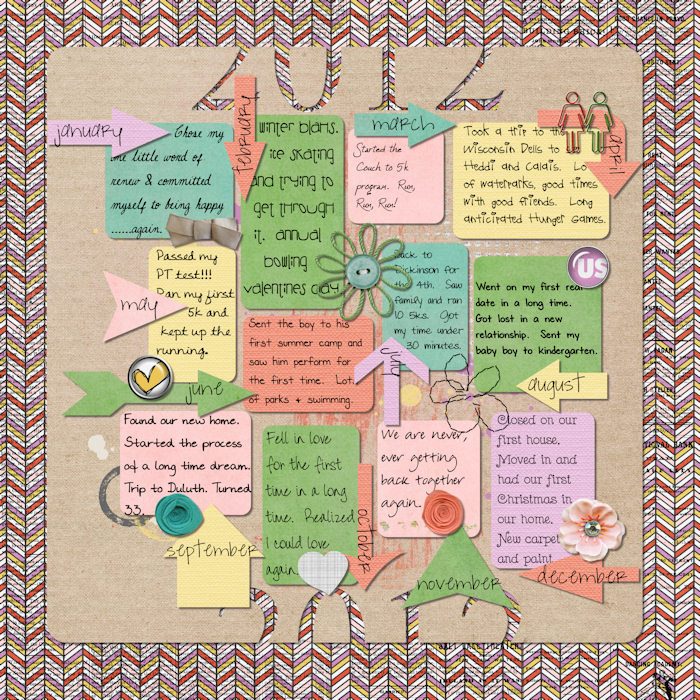 2012
january
Chose my
one little word of
renew & committed
myself to being happy
......again.
february
winter blahs.
ice skating
and trying to
get through
it. annual
bowling
valentines day.
march
Started the
Couch to 5k
program. Run,
Run, Run!
april
Took a trip to the
Wisconsin Dells to
Heddi and Calais.
of waterparks, good times
with good friends. Long
anticirated Hunger Games.
may
Passed my
PT test!!!
Ran my first
5k and
kept up the
running.
june
Sent the boy to his
first summer camp and
saw him perform for
the first time. Lots
of parks & swimming.
july
Back to
Dickinson for
the 4th. Saw
family and ran
10 5ks. Got
my time under
30 minutes.
US
august
Went on my first real
date in a long time.
Got lost in a new
relationship. Sent my
baby boy to kindergarten.
september
Found our new home.
Started the process
of a long time dream.
Trip to Duluth. Turned
33.
october
Fell in love
for the first
time in a long
time. Realized
I could love
again.
november
We are never,
ever getting
back together
again.
december
Closed on our
first house.
Moved in and
had our first
Christmas in
our home.
New carpet
and paint